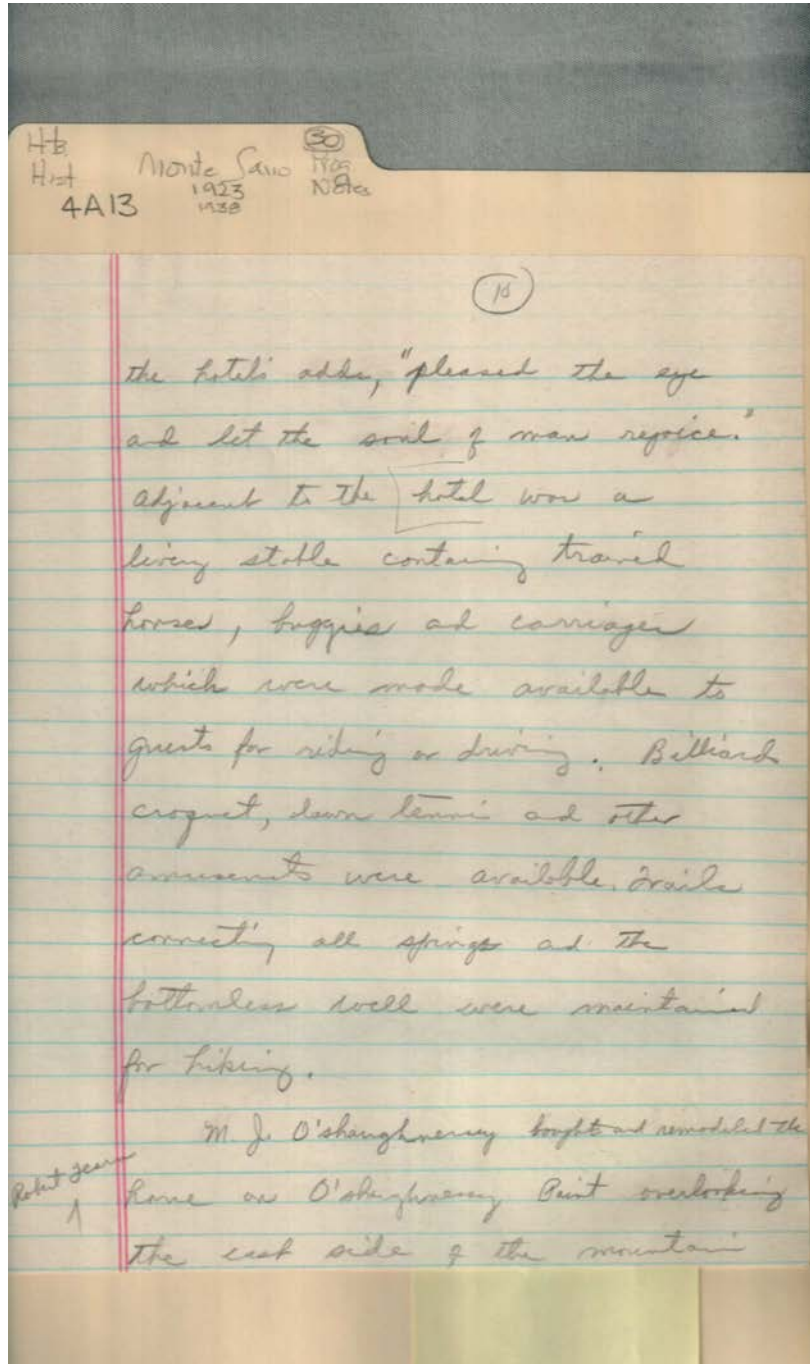 Monte Sano
Hist
4A13
1923
1938
30
Notes
the hotel's adds, "pleased the eye
and let the soul of man rejoice."
Adjacent to the hotel was a
livery stable containing trained
horses, buggies and carriages
which were made available to
guests for riding or driving. Billiards
croquet, lawn tennis and other
amusements were available. Trails
connecting all springs and the
bottomless well were maintained
for hiking.
M. J. O'Shaughnessy bought and remodeled the
Robert
home on O'Shaughnessy Point overlooking
the east side of the mountain